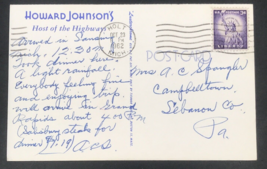 HOWARD JOHNSON'S
Host of the Highways
Arrived in
Lunch, 12:20
Took dinner here
A light rainfall.
Everybody feeling fine
and enjoying trip.
will arrive in Grand
Rapids about 4:00 P.M.
(Salisbury steaks for
dinner $1.19) A.C.S.
POSTCARD
LIBERTY
Mrs A. C. Spangler
Campbelltown,
Lebanon Co.
Pa.